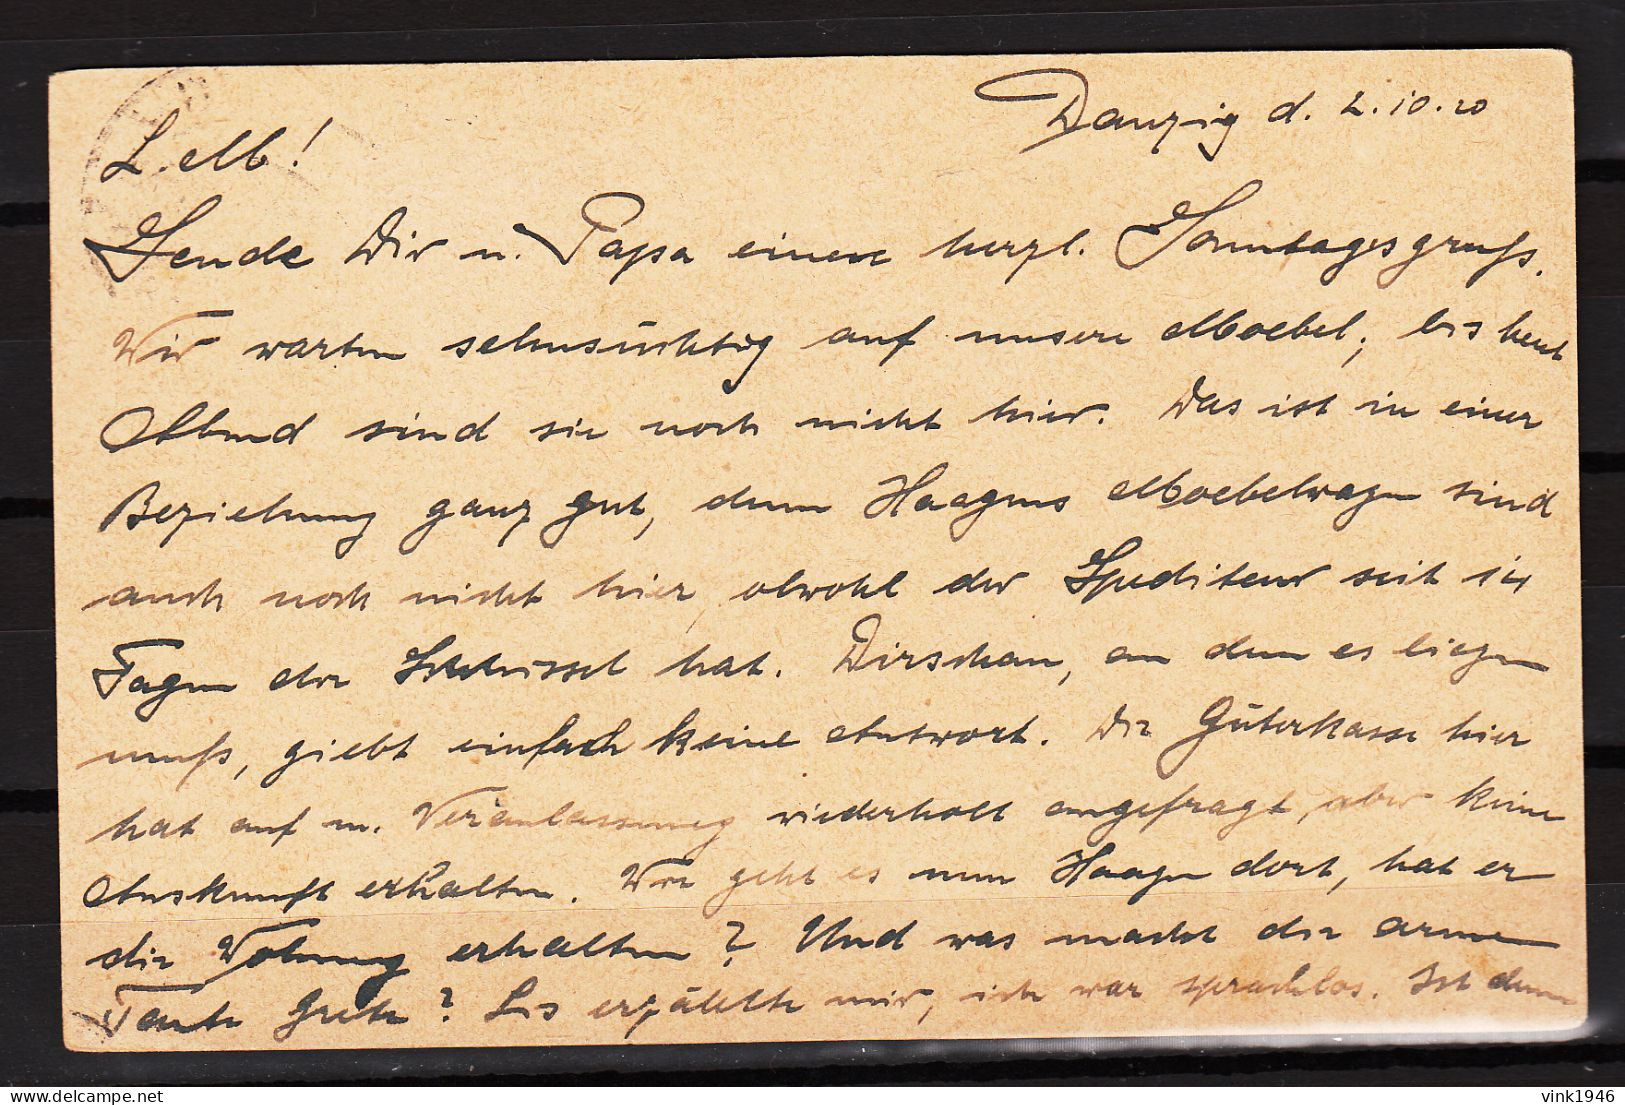 Danzig d. 2.10.20
L. M!
Sende Dir u. Papa einen herzl. Sonntagsgruß.
Wir warten sehnsüchtig auf unsere Moebel, bis heut
Abend sind sie noch nicht hier. Das ist in einer
Beziehung ganz gut, denn Haagens Moebelwagen sind
auch noch nicht hier, obwohl der Spediteur seit 14
Tagen die Schlüssel hat. Dirschau, an dem es liegen
muß, giebt einfach keine Antwort. Die Güterkasse hier
hat auf m. Veranlassung wiederholt angefragt, aber keine
Auskunft erhalten. Wie geht es nun Haagen dort, hat er
die Wohnung erhalten? Und was macht die arme
Tante Grete? Lis erzählte mir, ich war sprachlos. Ist denn
vink1946